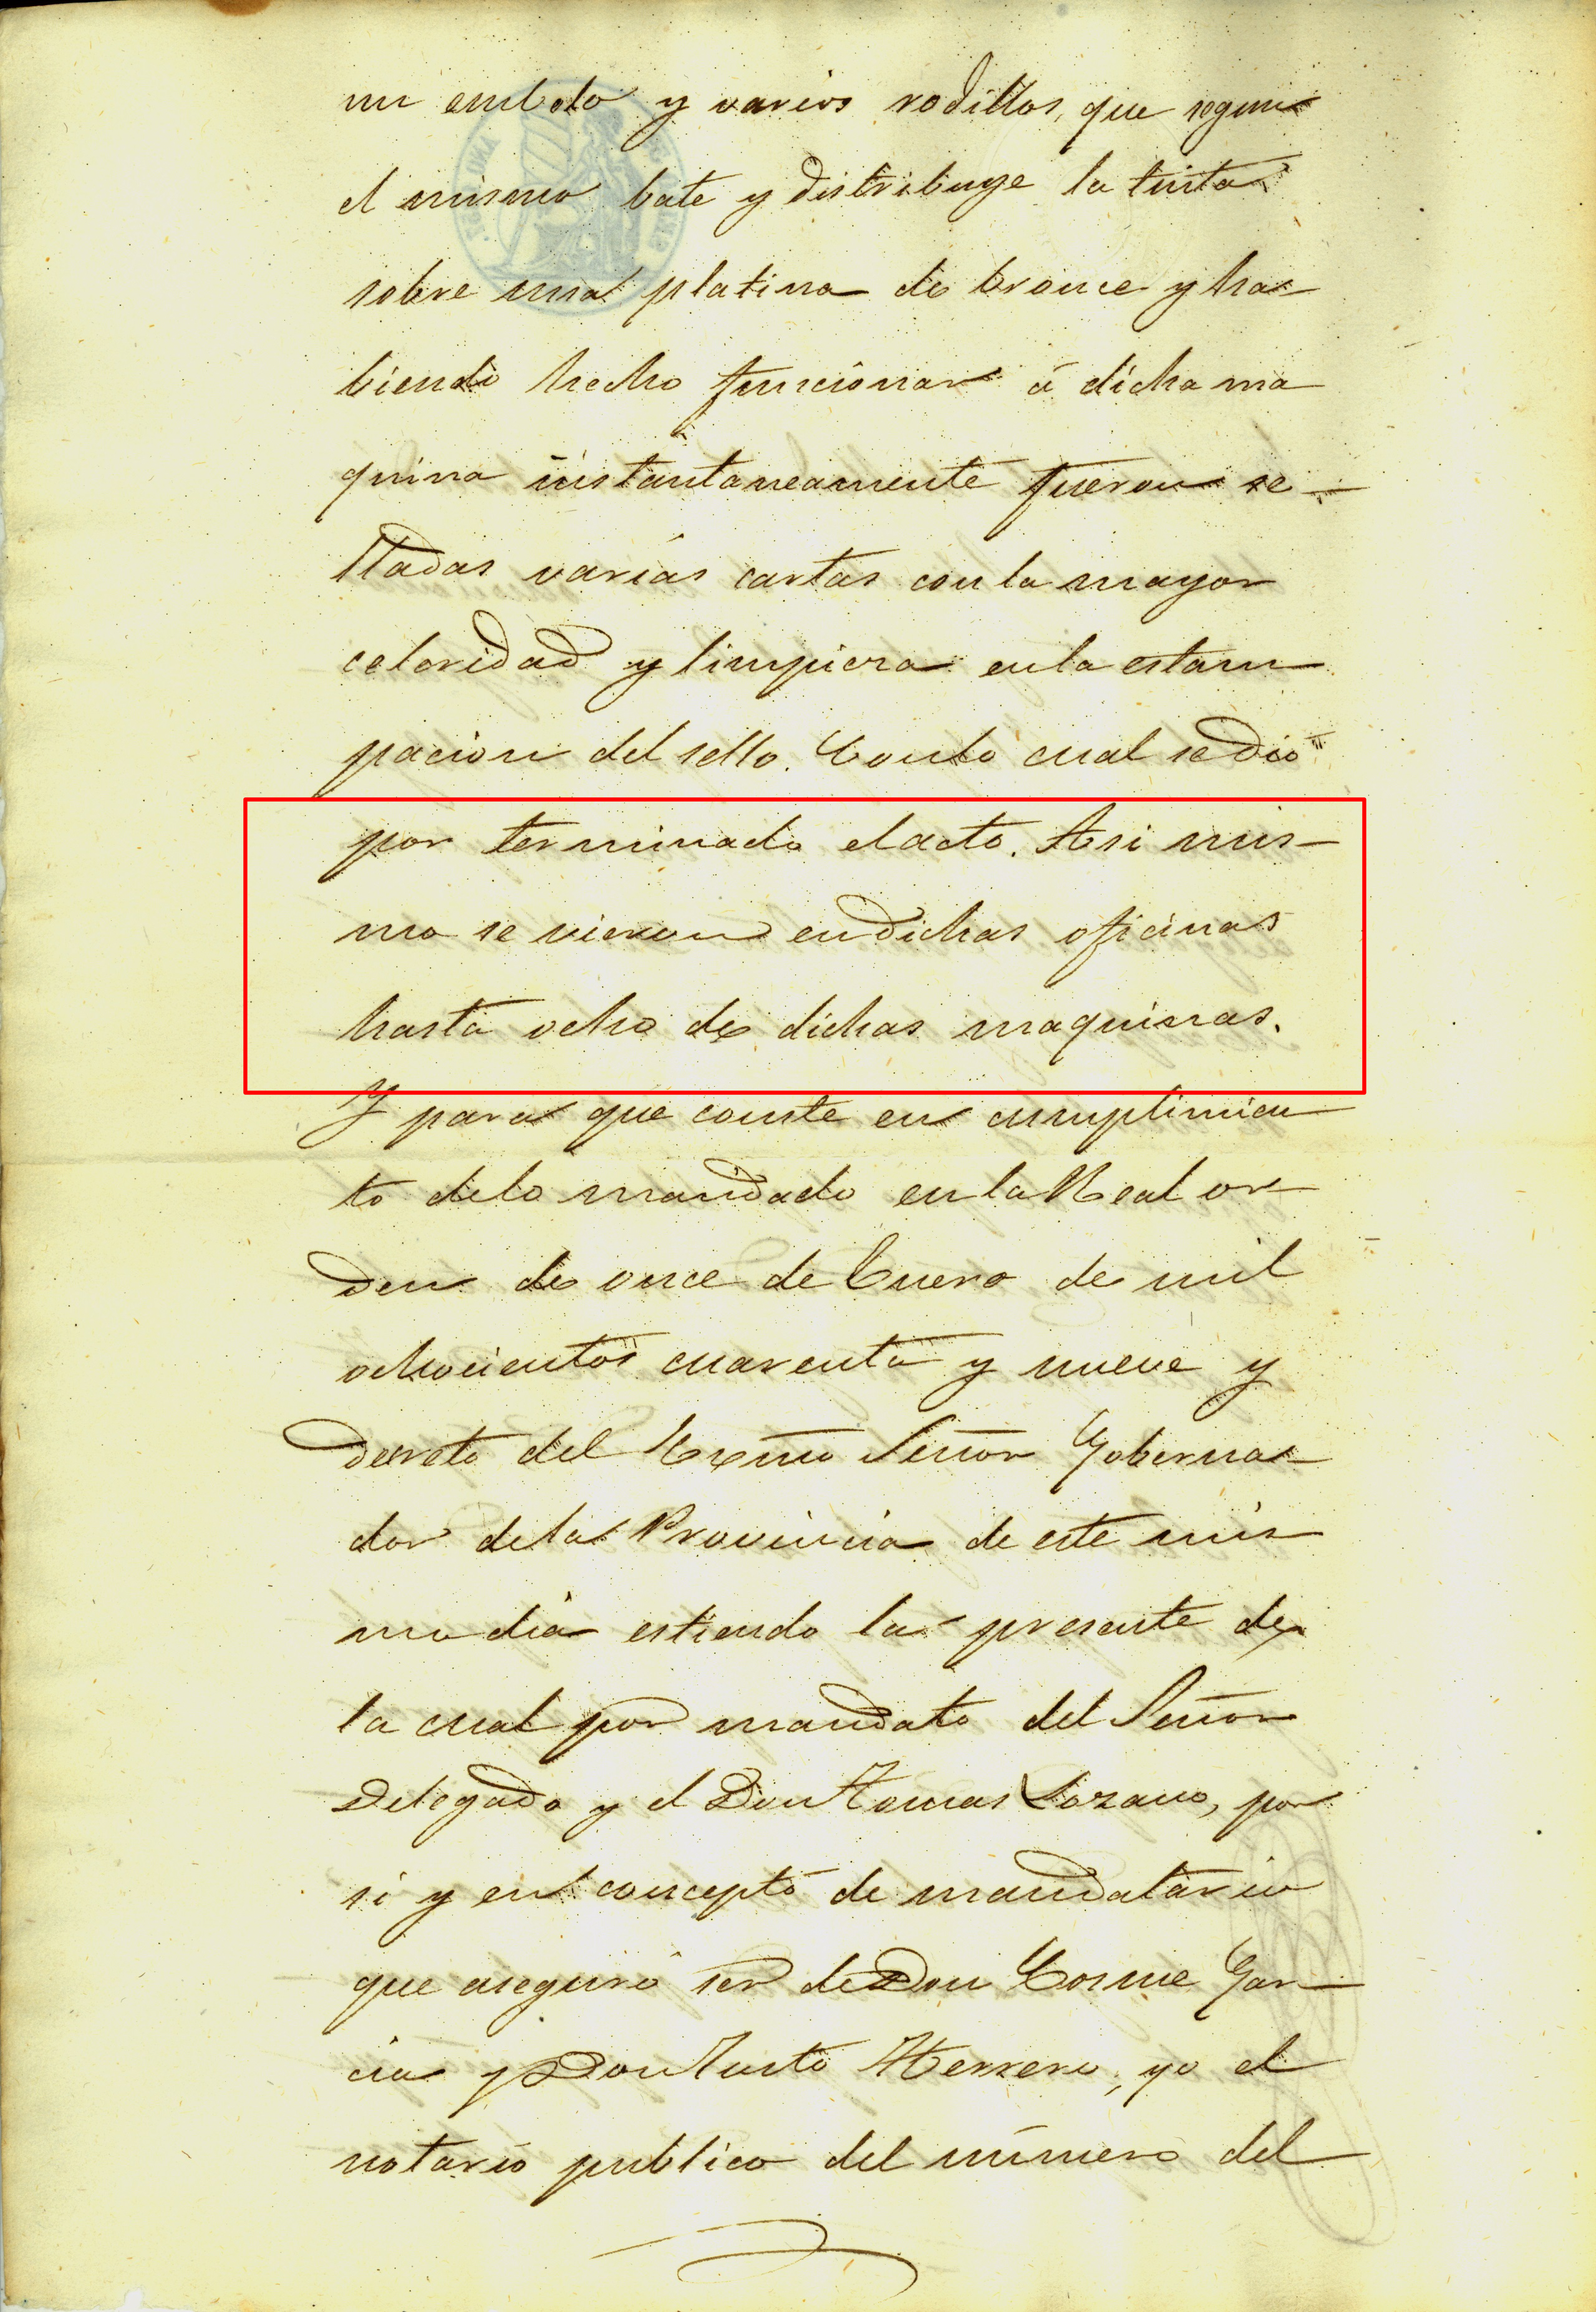 un embolo y varios rodillos, que segun
el mismo bate y distribuye la tinta
sobre una platina de bronce y ha-
biendo hecho funcionar á dicha ma
quina instantaneamente fueron se-
lladas varias cartas con la mayor
celeridad y limpieza en la estam
pacion del sello. Con lo cual se dio
por terminado el acto. Asi mis-
mo se vieron en dichas oficinas
hasta ocho de dichas maquinas.
Y para que conste en cumplimien
to de lo mandado en la Real or
den de once de Enero de mil
ochocientos cuarenta y nueve y
decreto del Exmo Señor Goberna-
dor de la Provincia de este mis
mo dia estiendo la presente de
la cual por mandato del Señor
Delegado y el Don Tomas Lozano, por
si y en concepto de mandatario
que aseguró ser de Don Cosme Gar-
cia y Don Justo Herrero, yo el
notario publico del número del